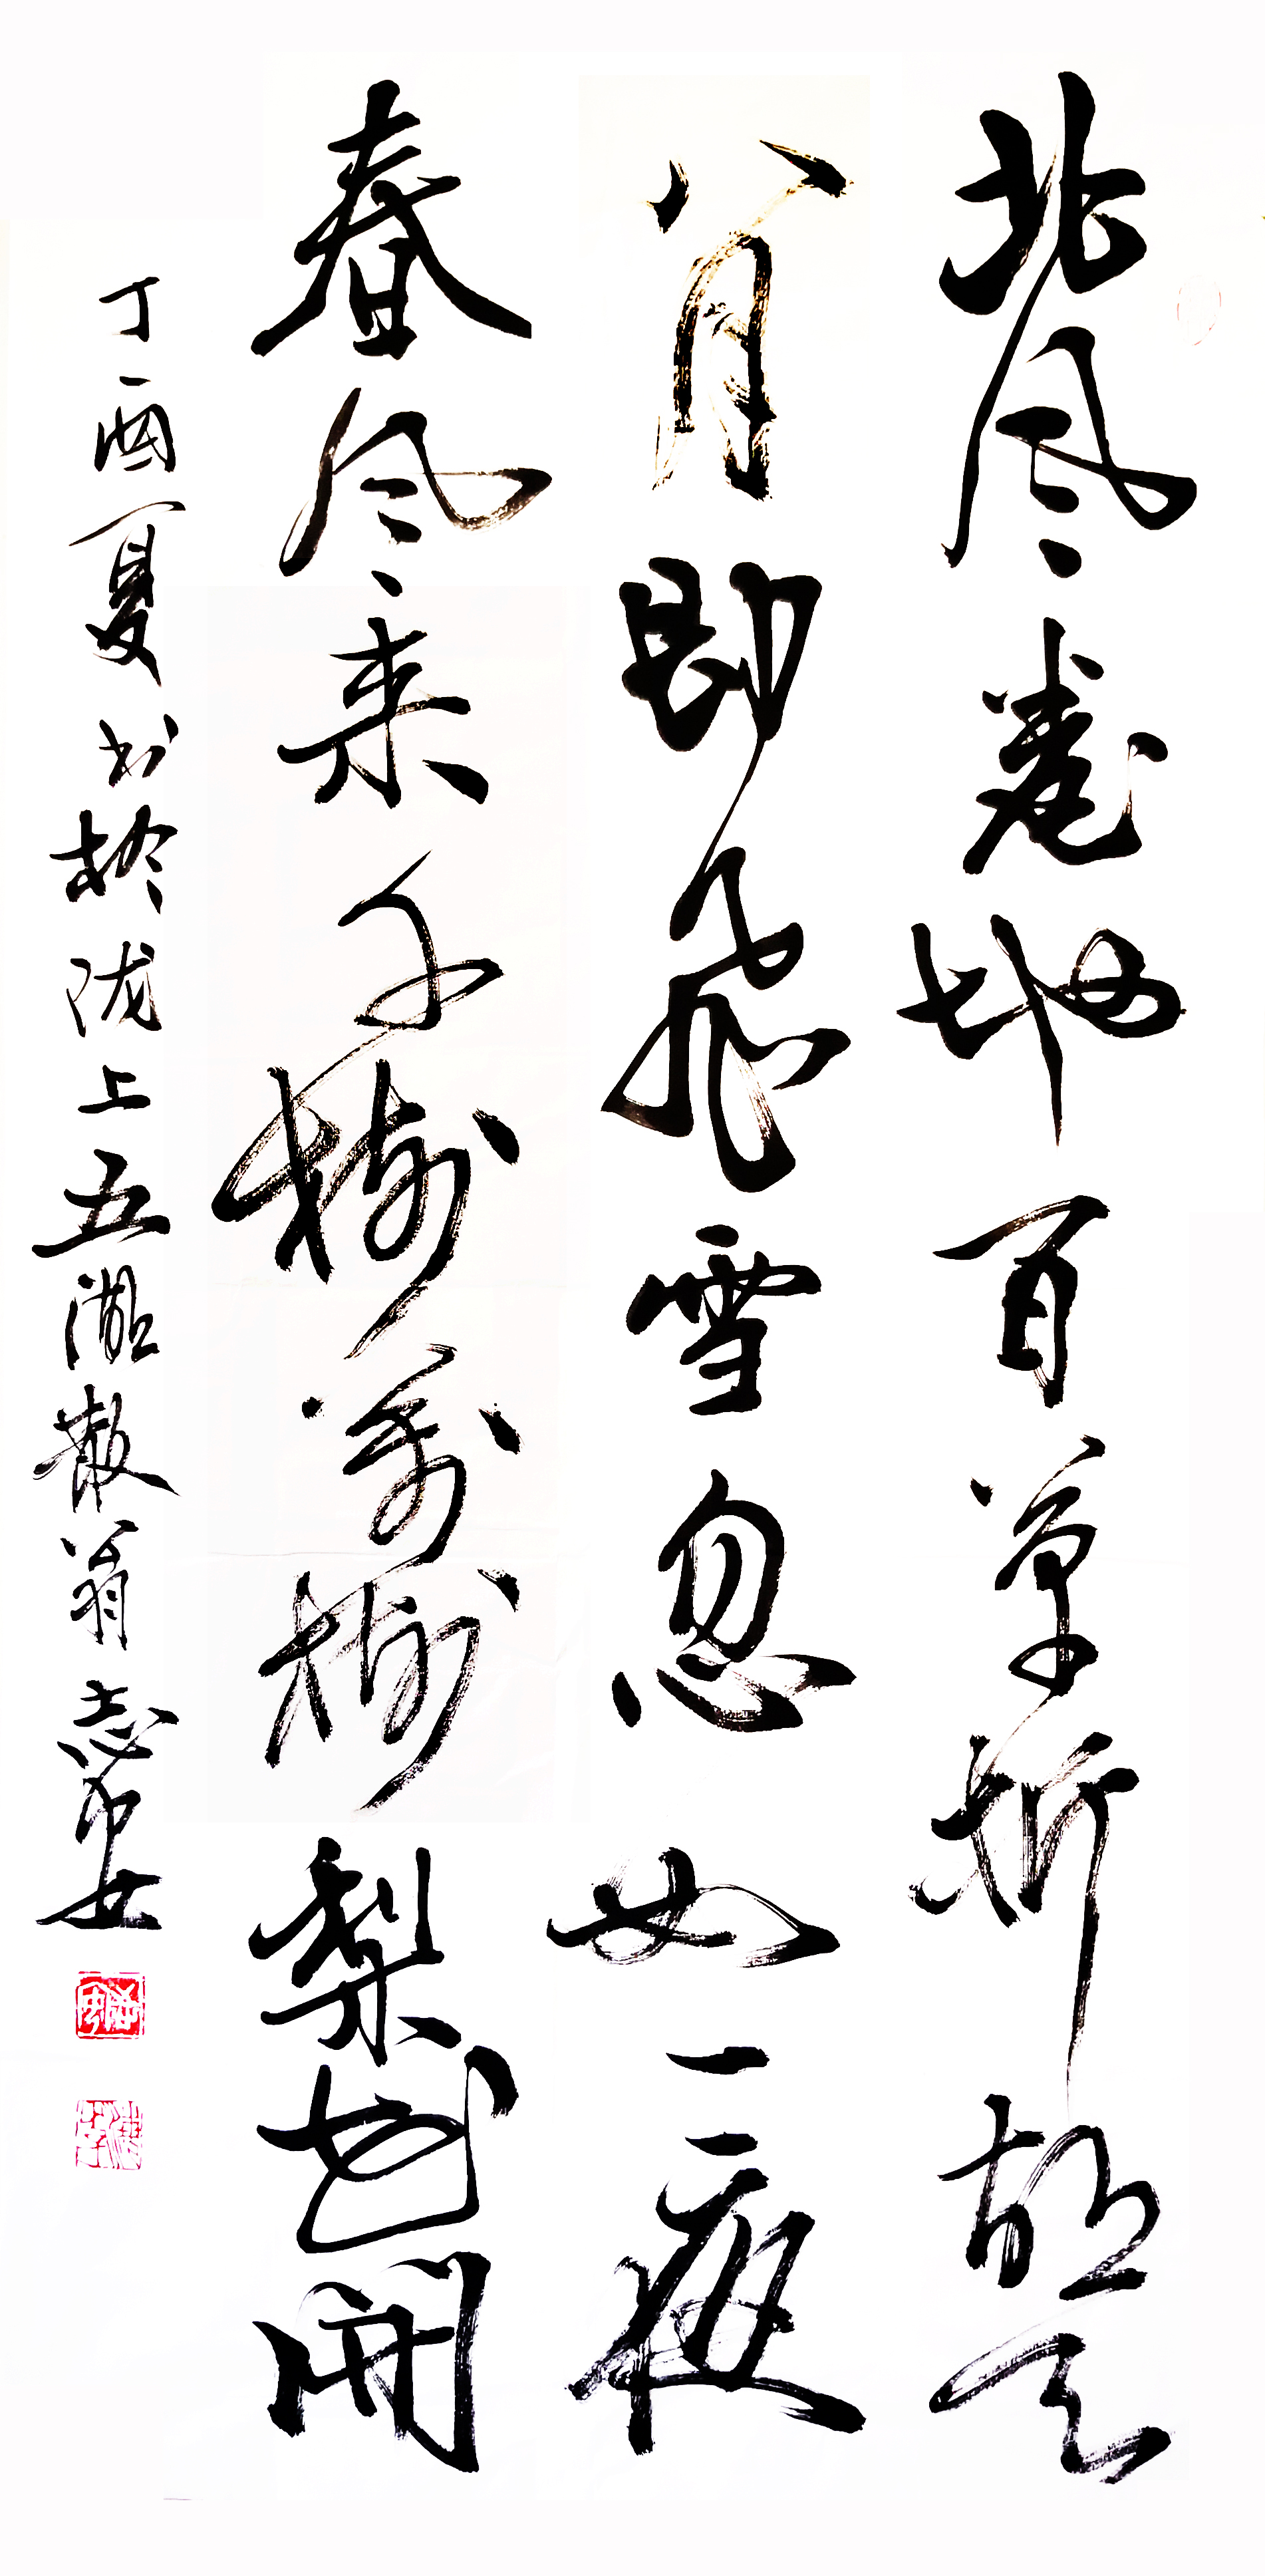 北风卷地百草折胡天
八月即飛雪忽如一夜
春风来千樹萬樹梨花開
丁酉夏书於陇上五湖散翁志